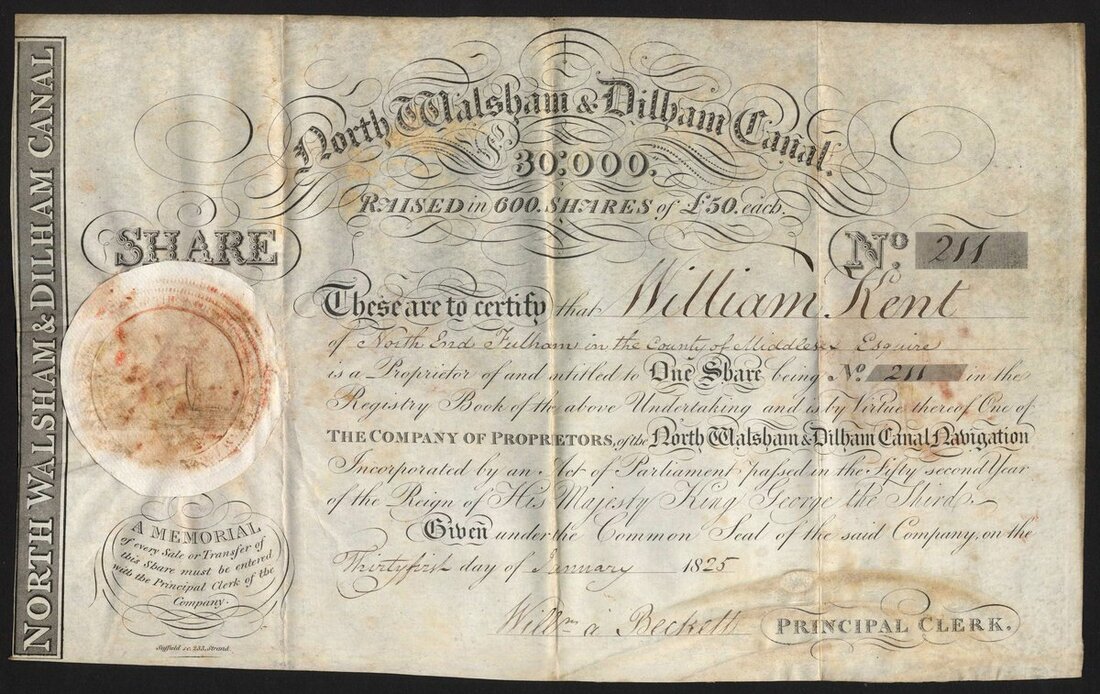 NORTH WALSHAM & DILHAM CANAL
North Walsham & Dilham Canal.
£
30,000.
RAISED in 600. SHARES of £50. each.
SHARE
No. 211
These are to certify that William Kent
of North End Fulham in the County of Middlesex Esquire
is a Proprietor of and intitled to One Share being No. 211 in the
Registry Book of the above Undertaking and is by Virtue thereof One of
THE COMPANY OF PROPRIETORS, of the North Walsham & Dilham Canal Navigation
Incorporated by an Act of Parliament passed in the Fifty second Year
of the Reign of His Majesty King George the Third
Given under the Common Seal of the said Company, on the
Thirtyfirst day of January 1825
Willm a Beckett PRINCIPAL CLERK.
A MEMORIAL
of every Sale or Transfer of
this Share must be entered
with the Principal Clerk of the
Company.
Suffield sc. 233, Strand.